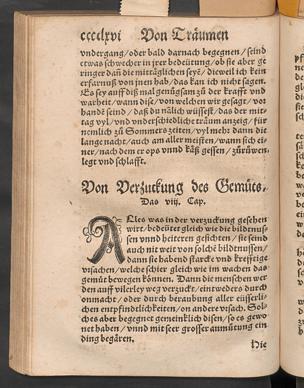 ccccxvi Von Träumen
vndergang/oder bald darnach begegnen/seind
etwas schwecher in jrer bedeütung/ob sie aber ge
ringer dañ die mittäglichen seyẽ/dieweil ich kein
erfarnuß von jnen hab/das kan ich nicht sagen.
Es sey auff diß mal genůgsam zů der krafft vnd
warheit/wann dise/von welchen wir gesagt/vor
handẽ seind/daß du nůn wüssest/das der mit-
tag vyl/vnd vnderschidliche träum anzeig/für
nemlich zů Sommerszeiten/vyl mehr dann die
lange nacht/auch am aller meisten/wann sich ei-
ner/nach dem er vnnd kåß gessen/zůrůwen
legt vnd schlafft.
Von Verzuckung des Gemüts.
Das viij. Cap.
ALles was in der verzuckung gesehen
wirt/bedeütet gleich wie die bildnus-
sen vnnd heiteren gesichten/sie seind
auch nit weit von solchẽ bildtnussen/
dann sie habend starcke vnd krefftige
vrsachen/welche schier gleich wie im wachen das
gemüt bewegen können. Dann die menschen wer
den auff vilerley weg verzuckt/eintweders durch
onmacht/oder durch beraubung aller eüsserli-
chen entpfindtlichkeiten/on andere vrsach. Sol-
ches aber begegnet gemeinklich disen/so es gewo
net haben/vnnd mit seer grosser anmůtung ein
ding begären.
Hie